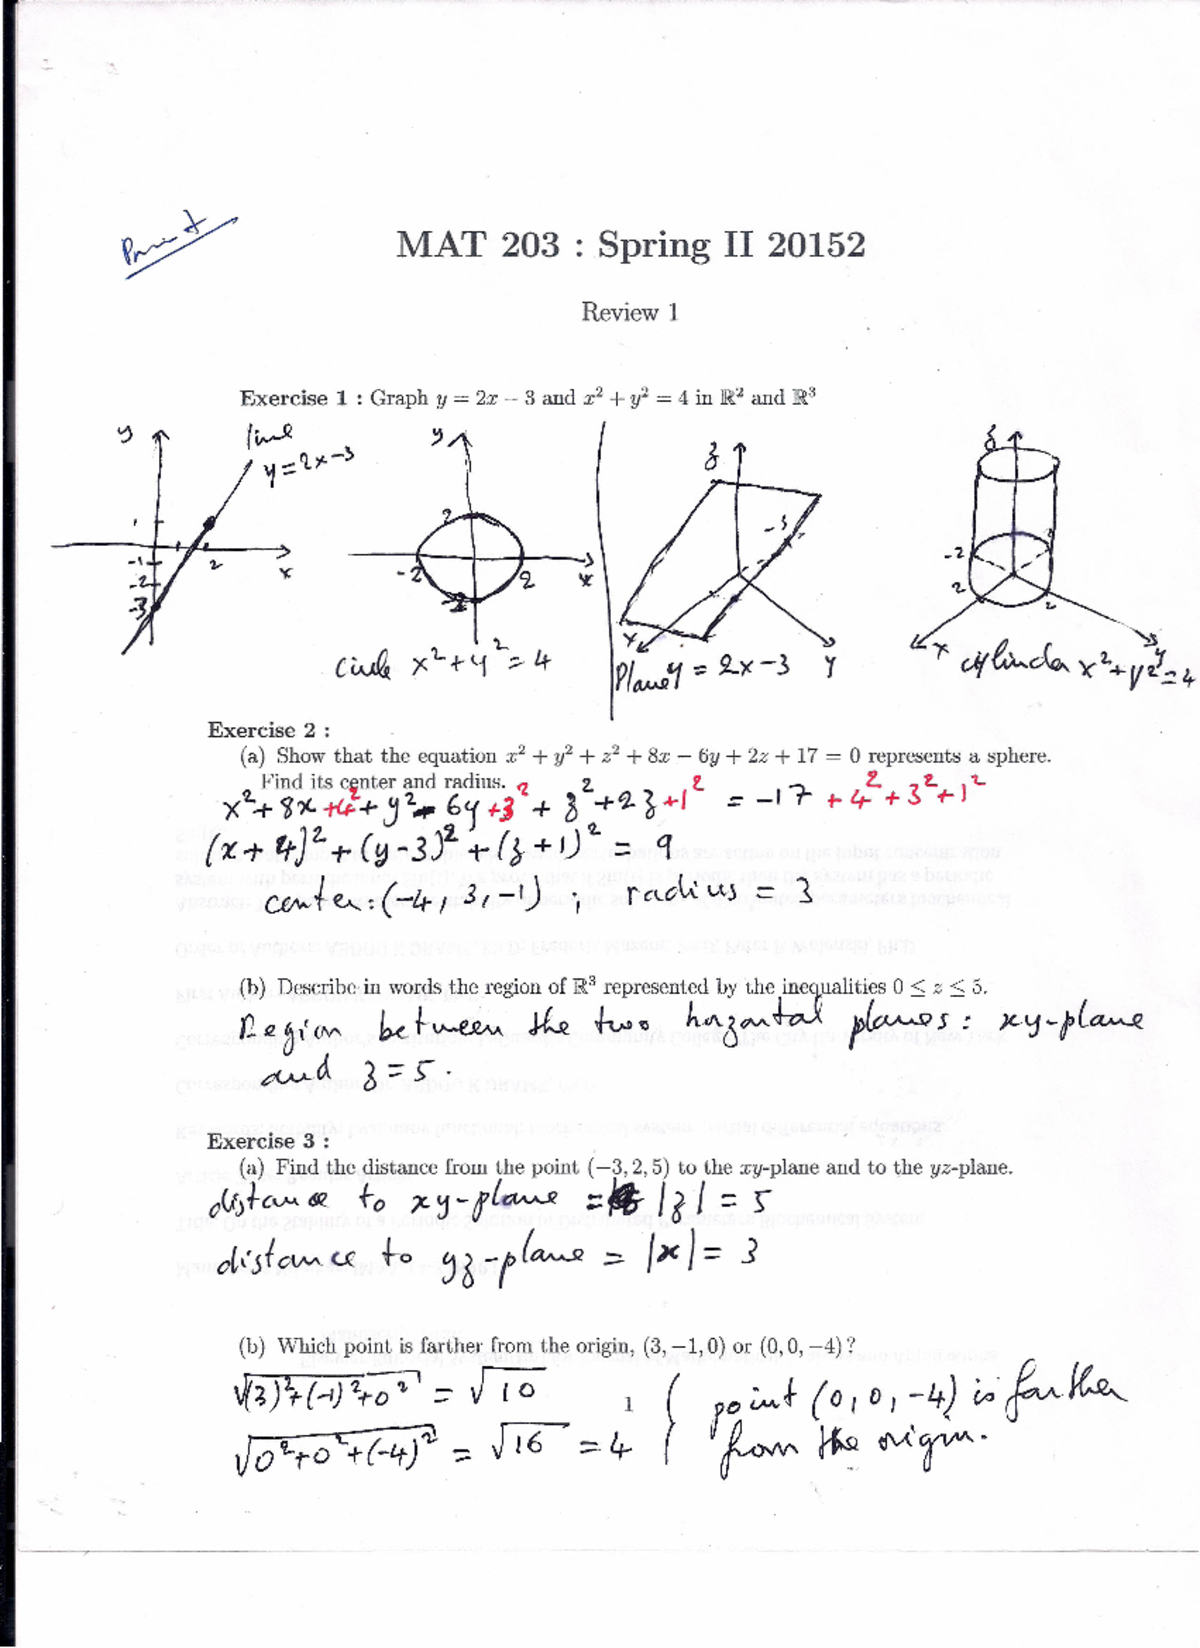 Print
MAT 203 : Spring II 20152
Review 1
Exercise 1 : Graph y = 2x − 3 and x² + y² = 4 in ℝ² and ℝ³
y line
y = 2x − 3
1
-1
-2
-3
2
x
y
2
-2
2
-2
x
Circle x² + y² = 4
z
-3
x
y
Plane y = 2x − 3
z
-2
2
2
x
y
cylinder x² + y² = 4
Exercise 2 :
(a) Show that the equation x² + y² + z² + 8x − 6y + 2z + 17 = 0 represents a sphere.
Find its center and radius.
x² + 8x + 4² + y² − 6y + 3² + z² + 2z + 1² = −17 + 4² + 3² + 1²
(x + 4)² + (y − 3)² + (z + 1)² = 9
center : (−4, 3, −1) ; radius = 3
(b) Describe in words the region of ℝ³ represented by the inequalities 0 ≤ z ≤ 5.
Region between the two horzontal planes : xy-plane
and z = 5 .
Exercise 3 :
(a) Find the distance from the point (−3, 2, 5) to the xy-plane and to the yz-plane.
distance to xy-plane = |z| = 5
distance to yz-plane = |x| = 3
(b) Which point is farther from the origin, (3, −1, 0) or (0, 0, −4)?
√(3)² + (−1)² + 0² = √10
√0² + 0² + (−4)² = √16 = 4
1
point (0, 0, −4) is farther
from the origin.